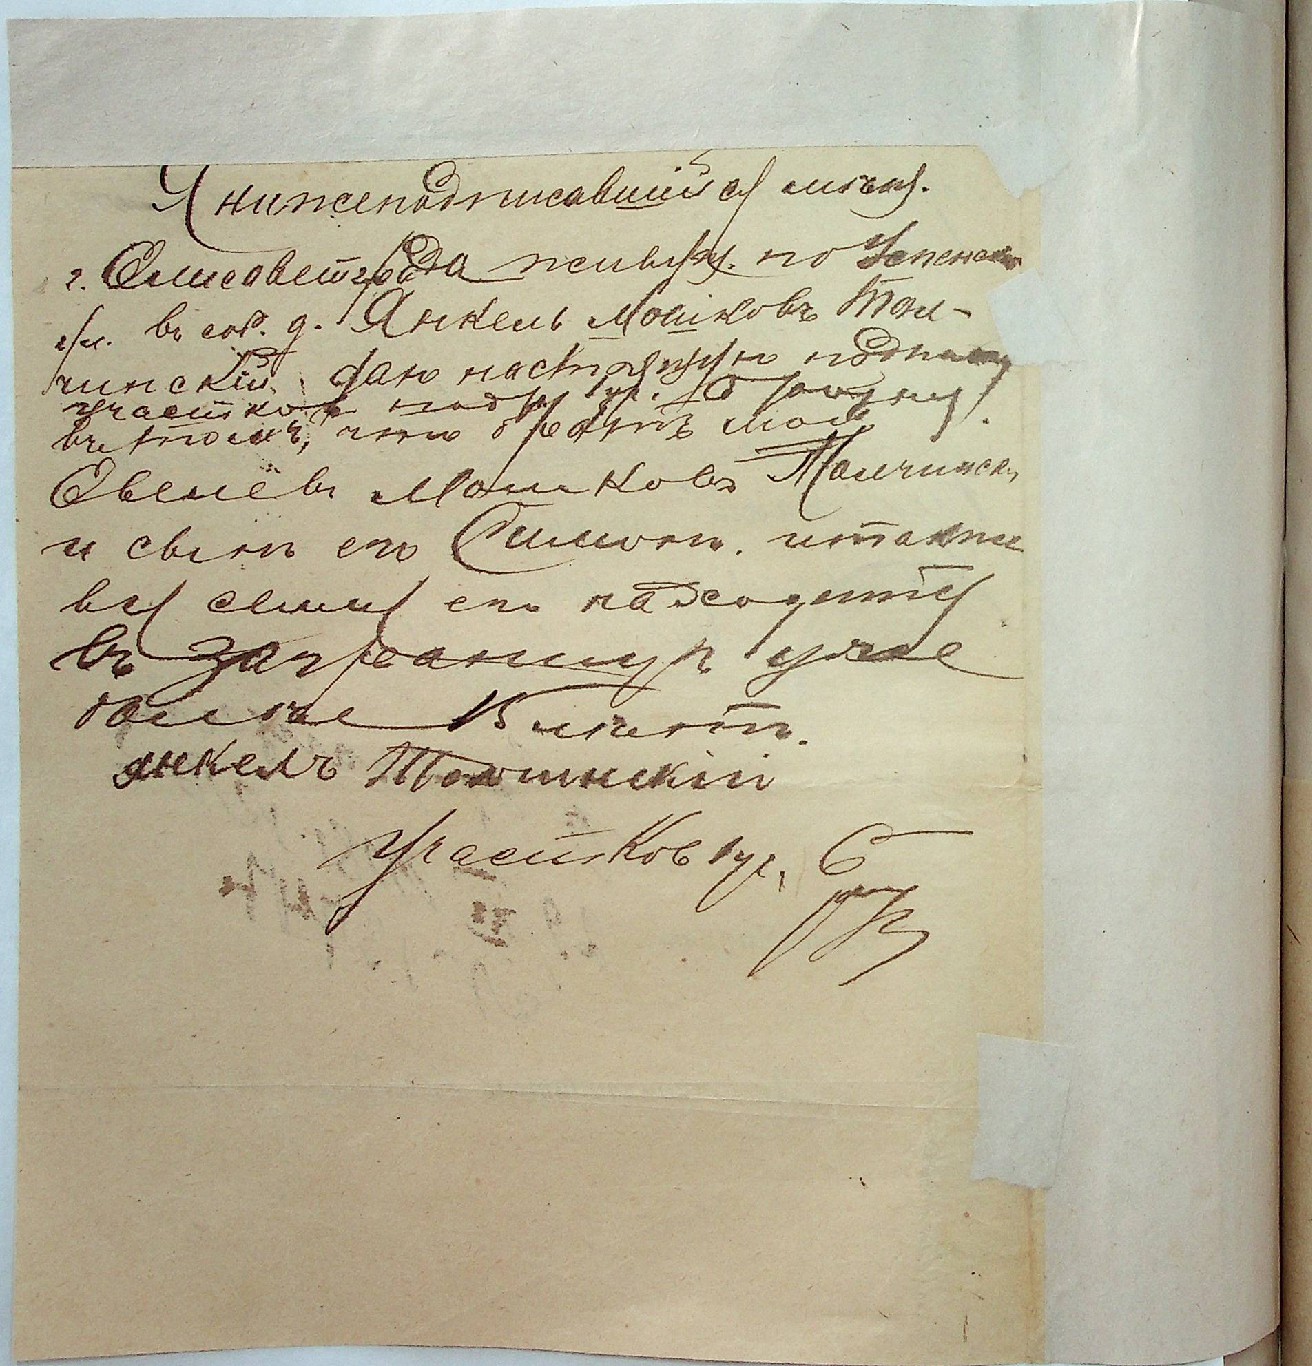 Я нижеподписавшійся мѣщ.
г. Елисаветграда живущ. по Успенской
ул. въ соб. д. Янкель Мошковъ Тол-
чинскій даю настоящую подписку
участков
въ томъ, что братъ мой
Евелевъ Мошковъ Толчинск.
и сынъ его Симонъ. итакже
вся семья его находится
въ
Янкель Толчинскій
Участков